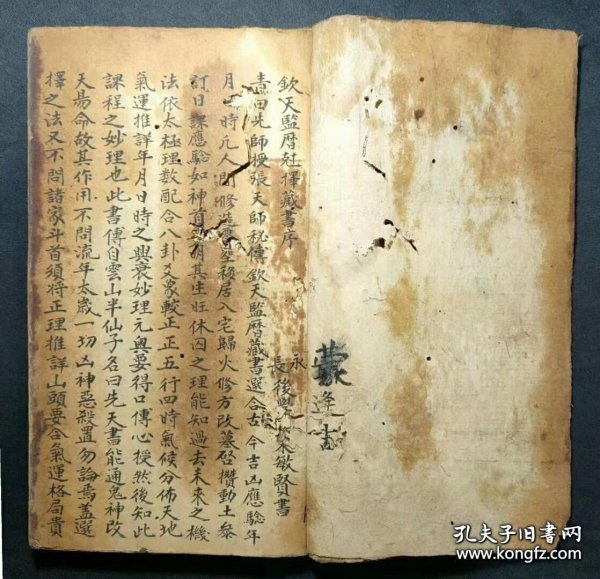 蒙逢書
欽天監曆尅擇藏書序
永
長後學 來敏賢書
先師授張天師秘傳欽天監曆藏書選合古今吉凶應驗年
月 時凡人 修造 移居入宅歸火修方改墓啓攢動土叅
訂日課應驗如神 其生旺休囚之理能知過去未來之機
法依太極理數配合八卦爻象較正正五行四時氣候分佈天地
氣運推詳年月日時之興衰妙理元奥要得口傳心授然後知此
課程之妙理也此書傳自雲山半仙子名曰先天書能通鬼神改
天易命故其作用不問流年太歲一切凶神惡殺置勿論焉盖選
擇之法又不問諸家斗首須将正理推詳山頭要合氣運格局貴
孔夫子旧书网
www.kongfz.com